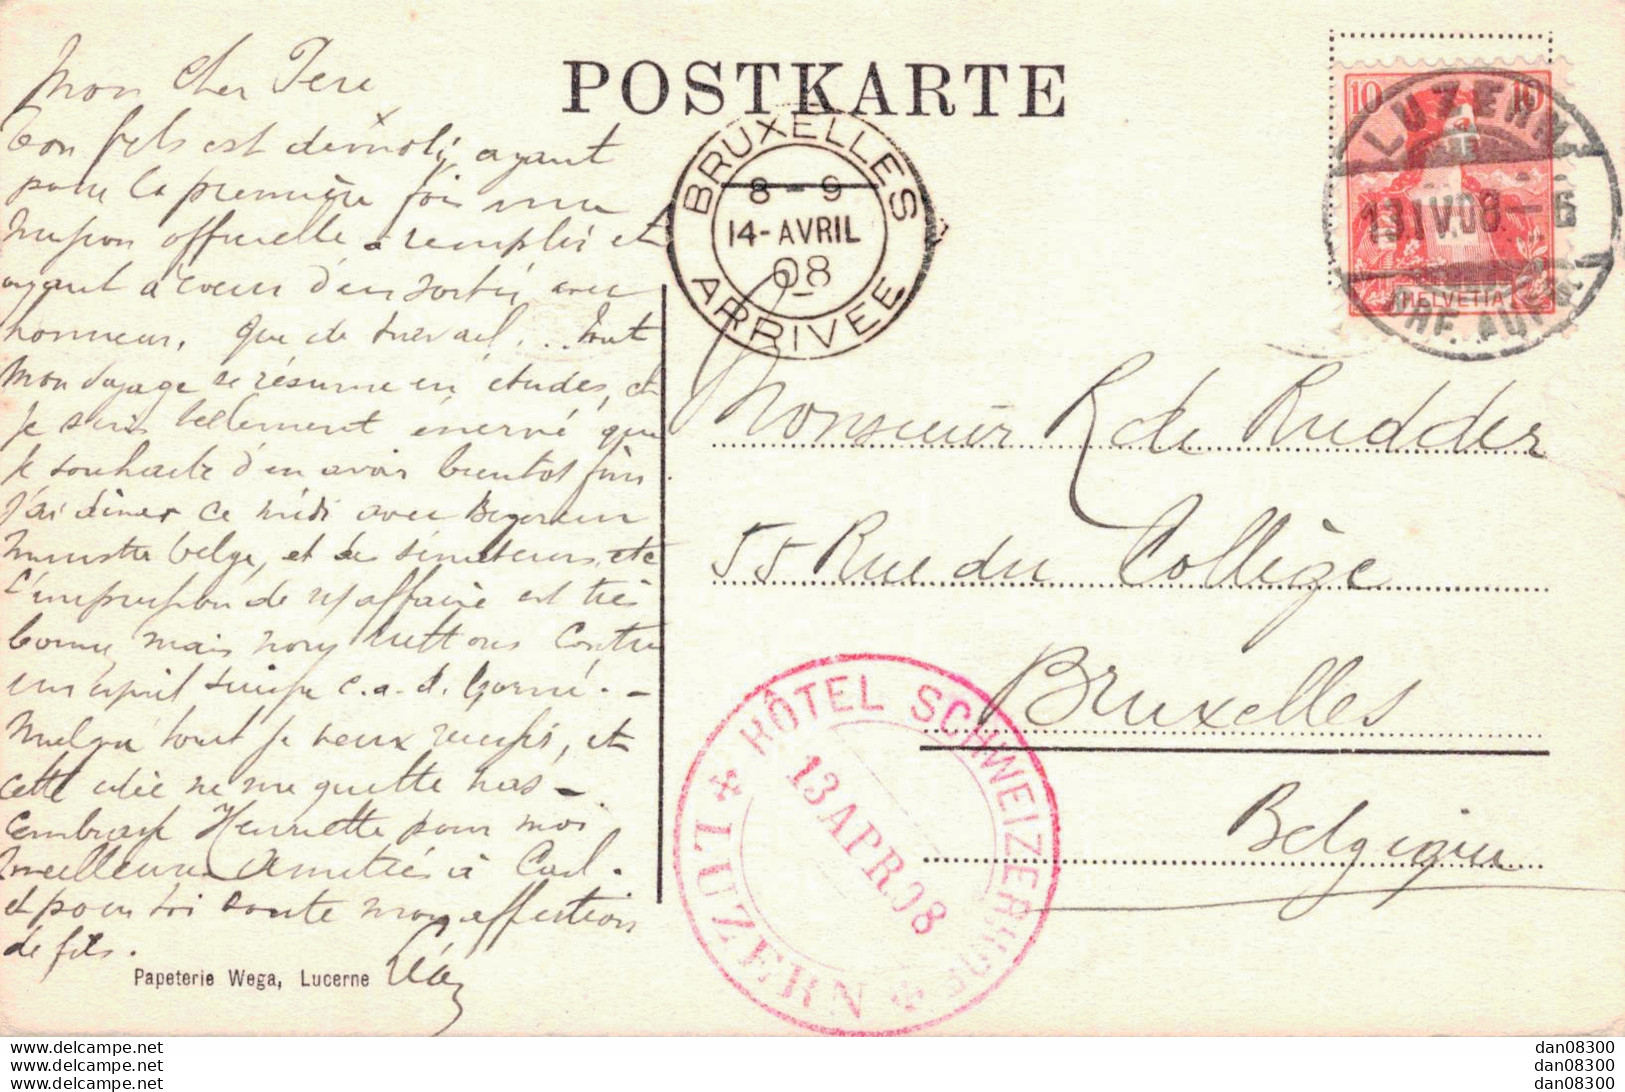 POSTKARTE
Mon cher Père
Ton fils est démoli, ayant
pour la première fois une
mission officielle à remplir et
ayant à coeur d'en sortir avec
honneur. que de travail... tout
mon voyage se résume en études, et
je suis tellement énervé que
je souhaite d'en avoir bientot fini.
J'ai diner ce midi avec
ministre belge, et des sénateurs, etc
L'impression de affaire est très
bonne, mais nous luttons contre
un c.a.d. borné. -
Malgré tout je veux réussir, et
cette idée ne me quitte pas -
Embrasse Henriette pour moi
meilleures amitiés à Carl.
et pour toi toute mon affection
de fils.
Papeterie Wega, Lucerne
BRUXELLES
8 - 9
14-AVRIL
08
ARRIVEE
10 10
HELVETIA
LUZERN
13.IV.08.-6
BRF. AUFG.
Monsieur R de Rudder
55 Rue du Collège
Bruxelles
Belgique
HÔTEL SCHWEIZERHOF
13 APR 08
LUZERN
www.delcampe.net
www.delcampe.net
www.delcampe.net
dan08300
dan08300
dan08300